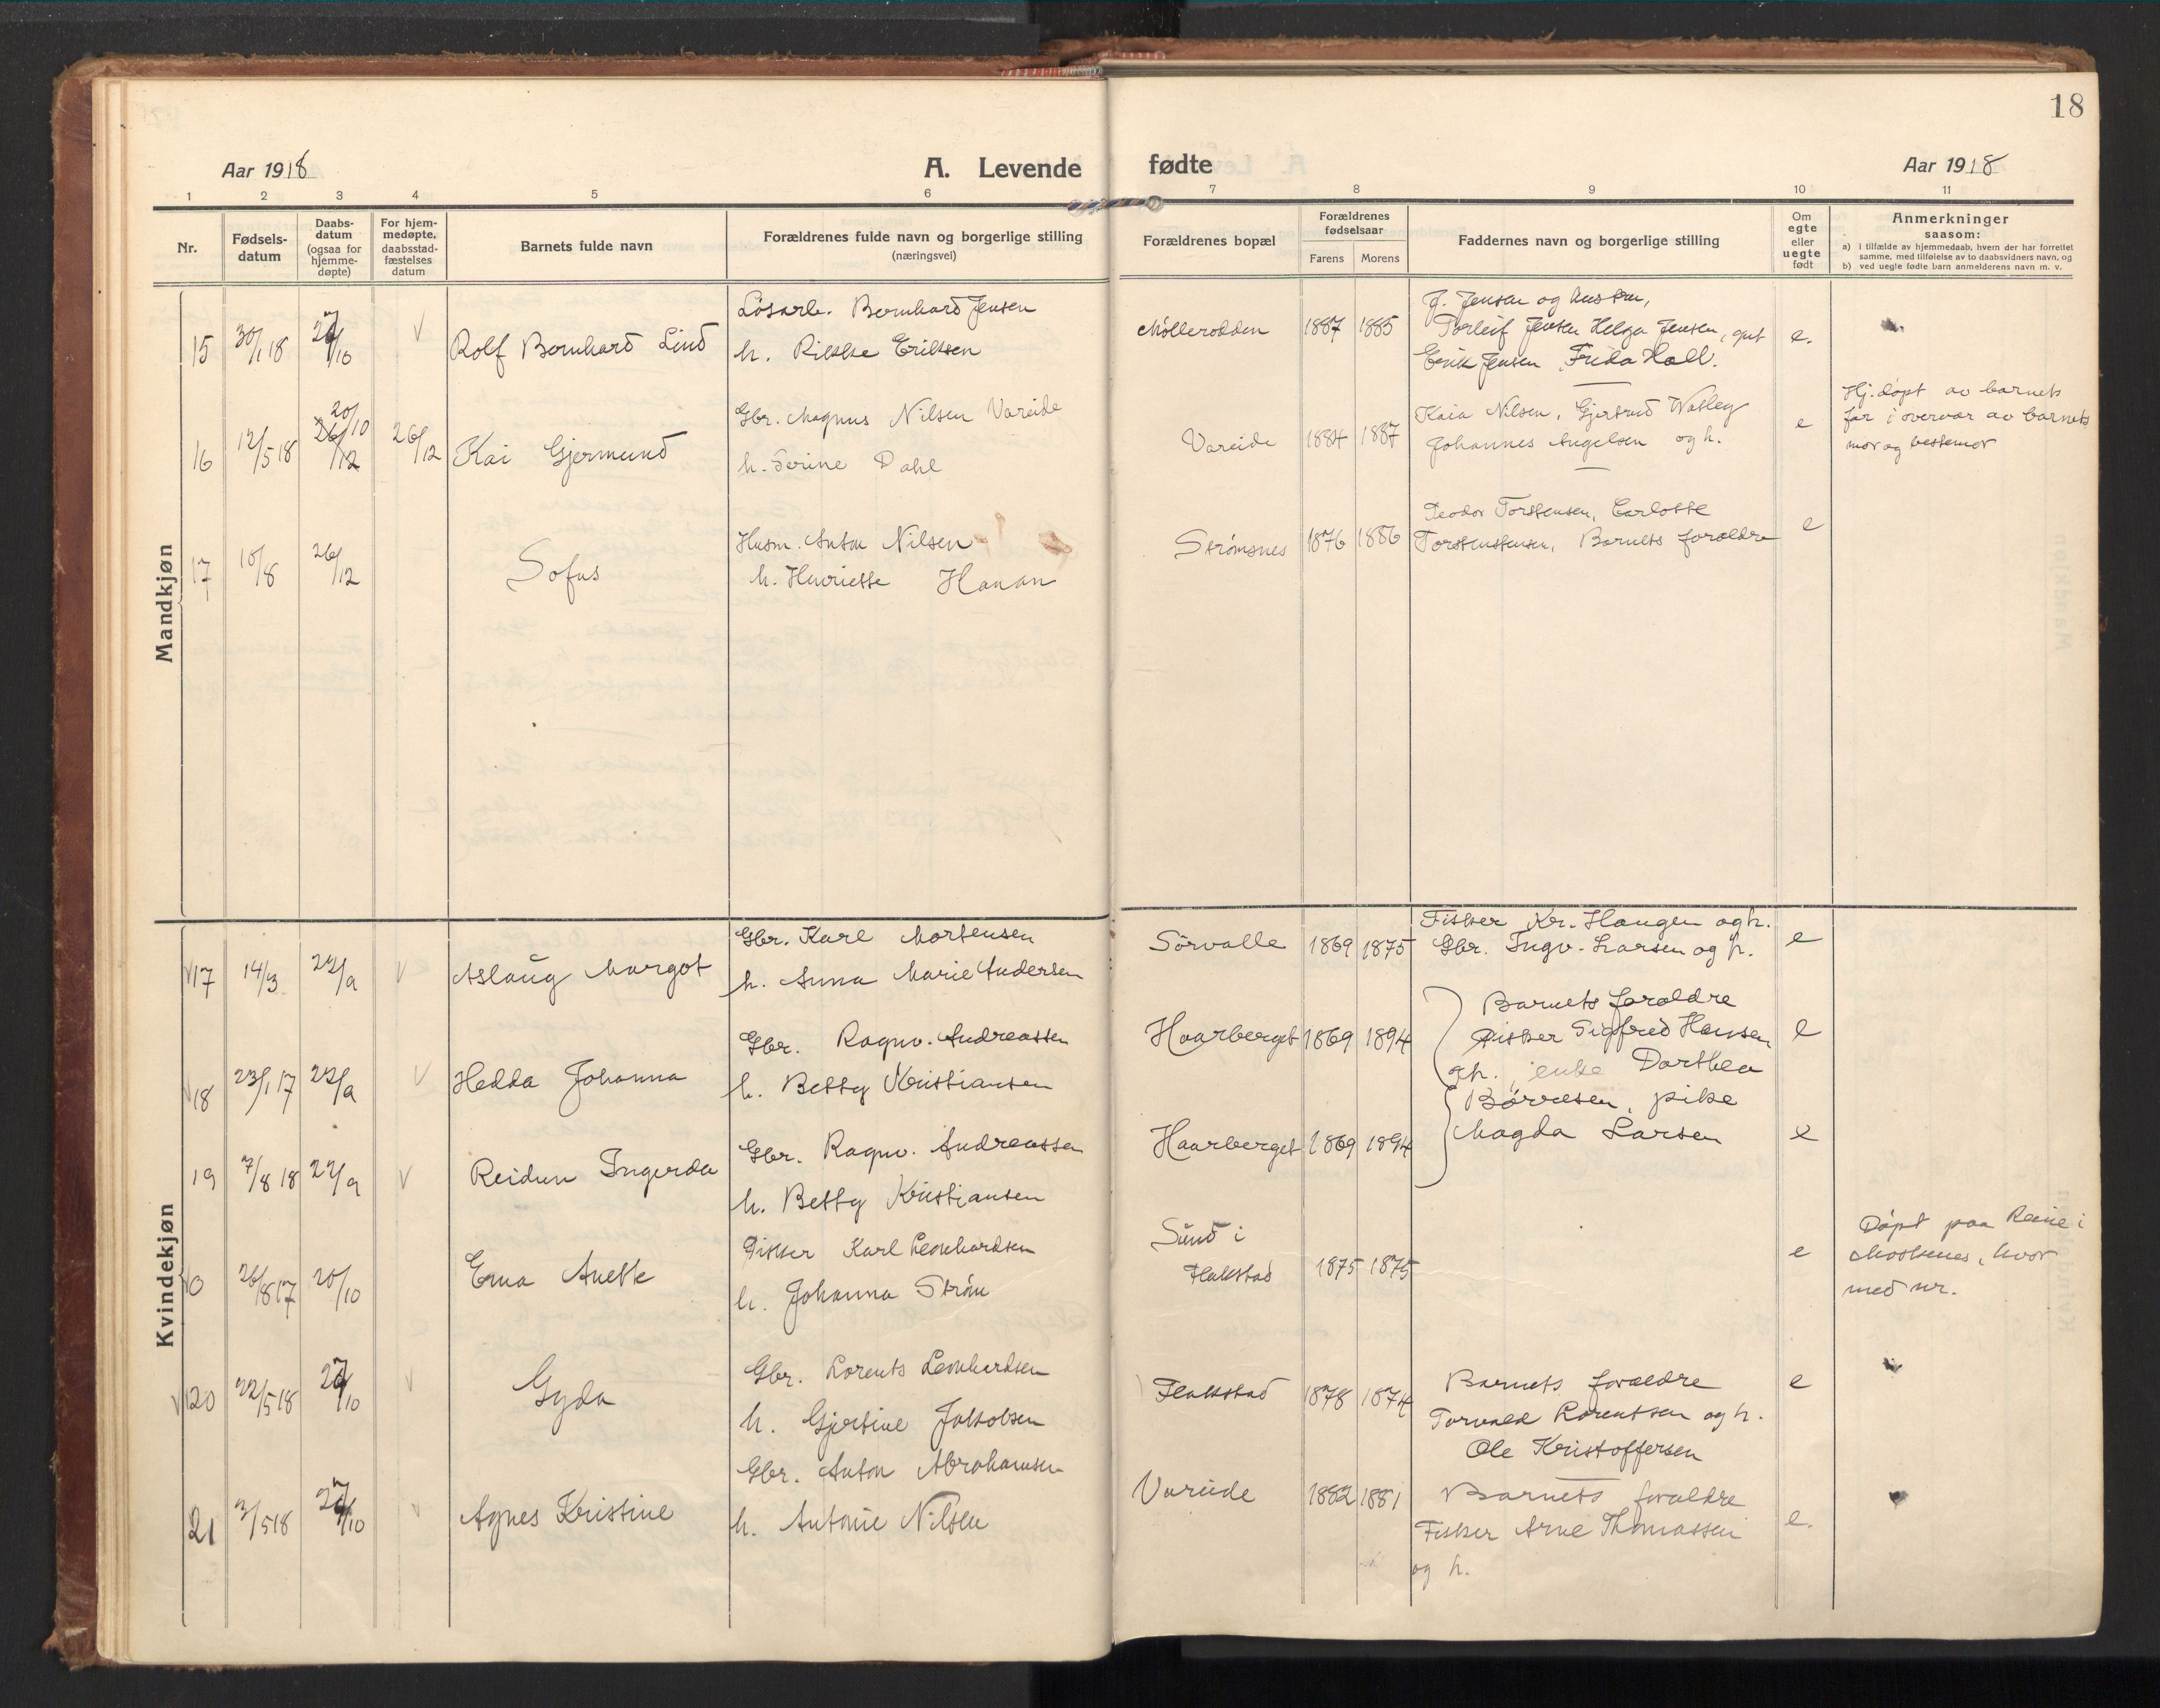 18
Aar 1918
A. Levende fødte
Aar 1918
1 2 3 4 5 6 7 8 9 10 11
Nr.
Fødsels-
datum
Daabs-
datum
(ogsaa for
hjemme-
døpte)
For hjem-
medøpte,
daabsstad-
fæstelses
datum
Barnets fulde navn
Forældrenes fulde navn og borgerlige stilling
(næringsvei)
Forældrenes bopæl
Forældrenes
fødselsaar
Farens Morens
Faddernes navn og borgerlige stilling
Om
egte
eller
uegte
født
Anmerkninger
saasom:
a) i tilfælde av hjemmedaab, hvem der har forrettet
samme, med tilføielse av to daabsvidners navn, og
b) ved uegte fødte barn anmelderens navn m. v.
Mandkjøn
15 30/1 18 27/10 Rolf Bernhard Lind
Løsarb. Bernhard Jensen
h. Rikke Eriksen
Møllerodden 1887 1885
J. Jensen og hustru,
Torleif Jensen Helga Jensen, gut
Erik Jensen, Frida Hall.
e.
16 12/5 18 20/10 26/12 26/12 Kai Gjermund
Gbr. Magnus Nilsen Vareide
h. Serine Dahl
Vareide 1884 1887
Kaia Nilsen, Gjertrud
Johannes Angelsen og h.
e
Hj.døpt av barnets
far i overvær av barnets
mor og bestemor
17 10/8 26/12 Sofus
Husm. Anton Nilsen
h. Henriette Hanan
Strømsnes 1876 1886
Teodor Torstensen, Carlotte
Torstenstensen, Barnets forældre
e
Kvindekjøn
17 14/3 22/9 Aslaug Margot
Gbr. Karl Mortensen
h. Anna Marie Andersen
Sørvalle 1869 1875
Fisker Kr. Haugen og h.
Gbr. Ingv. Larsen og h.
e
18 23/1 17 22/9 Hedda Johanna
Gbr. Ragnv. Andreassen
h. Betty Kristiansen
Haarberget 1869 1894
Barnets forældre
Fisker Sigfred Hansen
og h., enke Dorthea
Børresen, pike
Magda Larsen
e
19 7/8 18 22/9 Reidun Ingerda
Gbr. Ragnv. Andreassen
h. Betty Kristiansen
Haarberget 1869 1894
e
0 26/8 17 20/10 Erna Anette
Fisker Karl Leonhardsen
h. Johanna Strøm
Sund i
Flakstad
1875 1875
e
Døpt paa Reine i
Moskenes, hvor
med nr.
20 22/5 18 27/10 Gyda
Gbr. Lorents Leonhardsen
h. Gjertine Jakobsen
Flakstad 1878 1874
Barnets foreldre
Torvald Lorentsen og h.
Ole Kristoffersen
e
21 3/5 18 27/10 Agnes Kristine
Gbr. Anton Abrahamsen
h. Antonie Nilsen
Vareide 1882 1881
Barnets foreldre
Fisker Arne Thomassen
og h.
e.